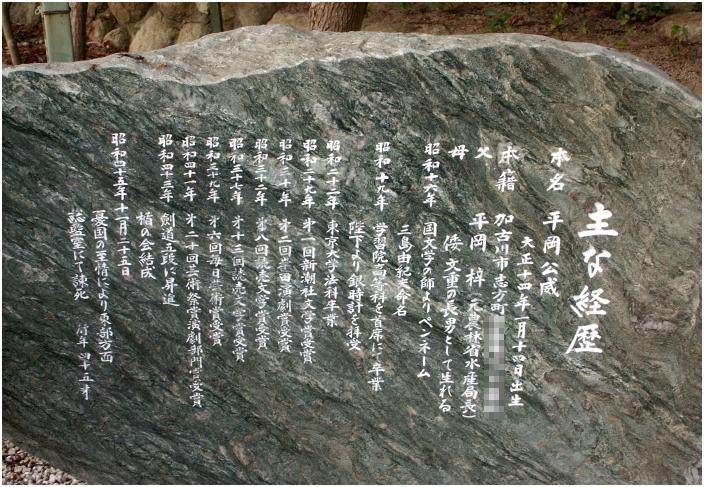 主な経歴
本名 平岡公威
大正十四年一月十四日出生
本籍 加古川市志方町
父 平岡 梓（元農林省水産局長）
母 倭文重の長男として生れる
昭和十六年 国文学の師よりペンネーム
三島由紀夫命名
昭和十九年 学習院高等科を首席にて卒業
陛下より銀時計を拝受
昭和二十二年 東京大学法科卒業
昭和二十九年 第一回新潮社文学賞受賞
昭和三十年 第二回岸田演劇賞受賞
昭和三十二年 第八回読売文学賞受賞
昭和三十七年 第十三回読売文学賞受賞
昭和三十九年 第六回毎日芸術賞受賞
昭和四十一年 第二十回芸術祭賞演劇部門賞受賞
昭和四十三年 剣道五段に昇進
楯の会結成
昭和四十五年十一月二十五日
憂国の至情により東部方面
総監室にて諌死 行年 四十五才